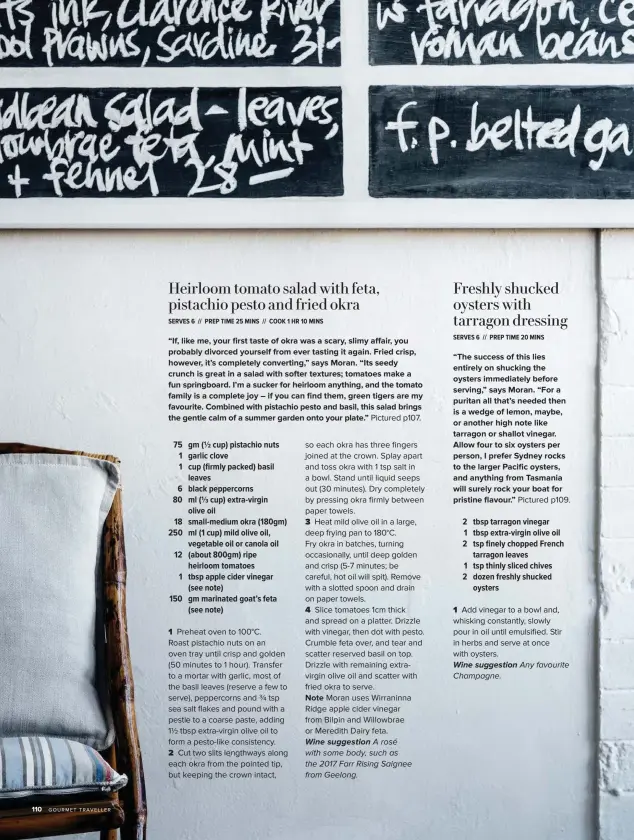 ts ink, Clarence River
ool Prawns, Sardine 31-
tarragon, ce
roman beans
dbean Salad - leaves,
owbrae feta, Mint
+ fennel 28 -
f.p. belted ga
Heirloom tomato salad with feta,
pistachio pesto and fried okra
SERVES 6 // PREP TIME 25 MINS // COOK 1 HR 10 MINS
“If, like me, your first taste of okra was a scary, slimy affair, you
probably divorced yourself from ever tasting it again. Fried crisp,
however, it’s completely converting,” says Moran. “Its seedy
crunch is great in a salad with softer textures; tomatoes make a
fun springboard. I’m a sucker for heirloom anything, and the tomato
family is a complete joy – if you can find them, green tigers are my
favourite. Combined with pistachio pesto and basil, this salad brings
the gentle calm of a summer garden onto your plate.” Pictured p107.
75 gm (½ cup) pistachio nuts
1 garlic clove
1 cup (firmly packed) basil
leaves
6 black peppercorns
80 ml (⅓ cup) extra-virgin
olive oil
18 small-medium okra (180gm)
250 ml (1 cup) mild olive oil,
vegetable oil or canola oil
12 (about 800gm) ripe
heirloom tomatoes
1 tbsp apple cider vinegar
(see note)
150 gm marinated goat’s feta
(see note)
1 Preheat oven to 100°C.
Roast pistachio nuts on an
oven tray until crisp and golden
(50 minutes to 1 hour). Transfer
to a mortar with garlic, most of
the basil leaves (reserve a few to
serve), peppercorns and ¾ tsp
sea salt flakes and pound with a
pestle to a coarse paste, adding
1½ tbsp extra-virgin olive oil to
form a pesto-like consistency.
2 Cut two slits lengthways along
each okra from the pointed tip,
but keeping the crown intact,
so each okra has three fingers
joined at the crown. Splay apart
and toss okra with 1 tsp salt in
a bowl. Stand until liquid seeps
out (30 minutes). Dry completely
by pressing okra firmly between
paper towels.
3 Heat mild olive oil in a large,
deep frying pan to 180°C.
Fry okra in batches, turning
occasionally, until deep golden
and crisp (5-7 minutes; be
careful, hot oil will spit). Remove
with a slotted spoon and drain
on paper towels.
4 Slice tomatoes 1cm thick
and spread on a platter. Drizzle
with vinegar, then dot with pesto.
Crumble feta over, and tear and
scatter reserved basil on top.
Drizzle with remaining extra-
virgin olive oil and scatter with
fried okra to serve.
Note Moran uses Wirraninna
Ridge apple cider vinegar
from Bilpin and Willowbrae
or Meredith Dairy feta.
Wine suggestion A rosé
with some body, such as
the 2017 Farr Rising Saignee
from Geelong.
Freshly shucked
oysters with
tarragon dressing
SERVES 6 // PREP TIME 20 MINS
“The success of this lies
entirely on shucking the
oysters immediately before
serving,” says Moran. “For a
puritan all that’s needed then
is a wedge of lemon, maybe,
or another high note like
tarragon or shallot vinegar.
Allow four to six oysters per
person, I prefer Sydney rocks
to the larger Pacific oysters,
and anything from Tasmania
will surely rock your boat for
pristine flavour.” Pictured p109.
2 tbsp tarragon vinegar
1 tbsp extra-virgin olive oil
2 tsp finely chopped French
tarragon leaves
1 tsp thinly sliced chives
2 dozen freshly shucked
oysters
1 Add vinegar to a bowl and,
whisking constantly, slowly
pour in oil until emulsified. Stir
in herbs and serve at once
with oysters.
Wine suggestion Any favourite
Champagne.
110 GOURMET TRAVELLER